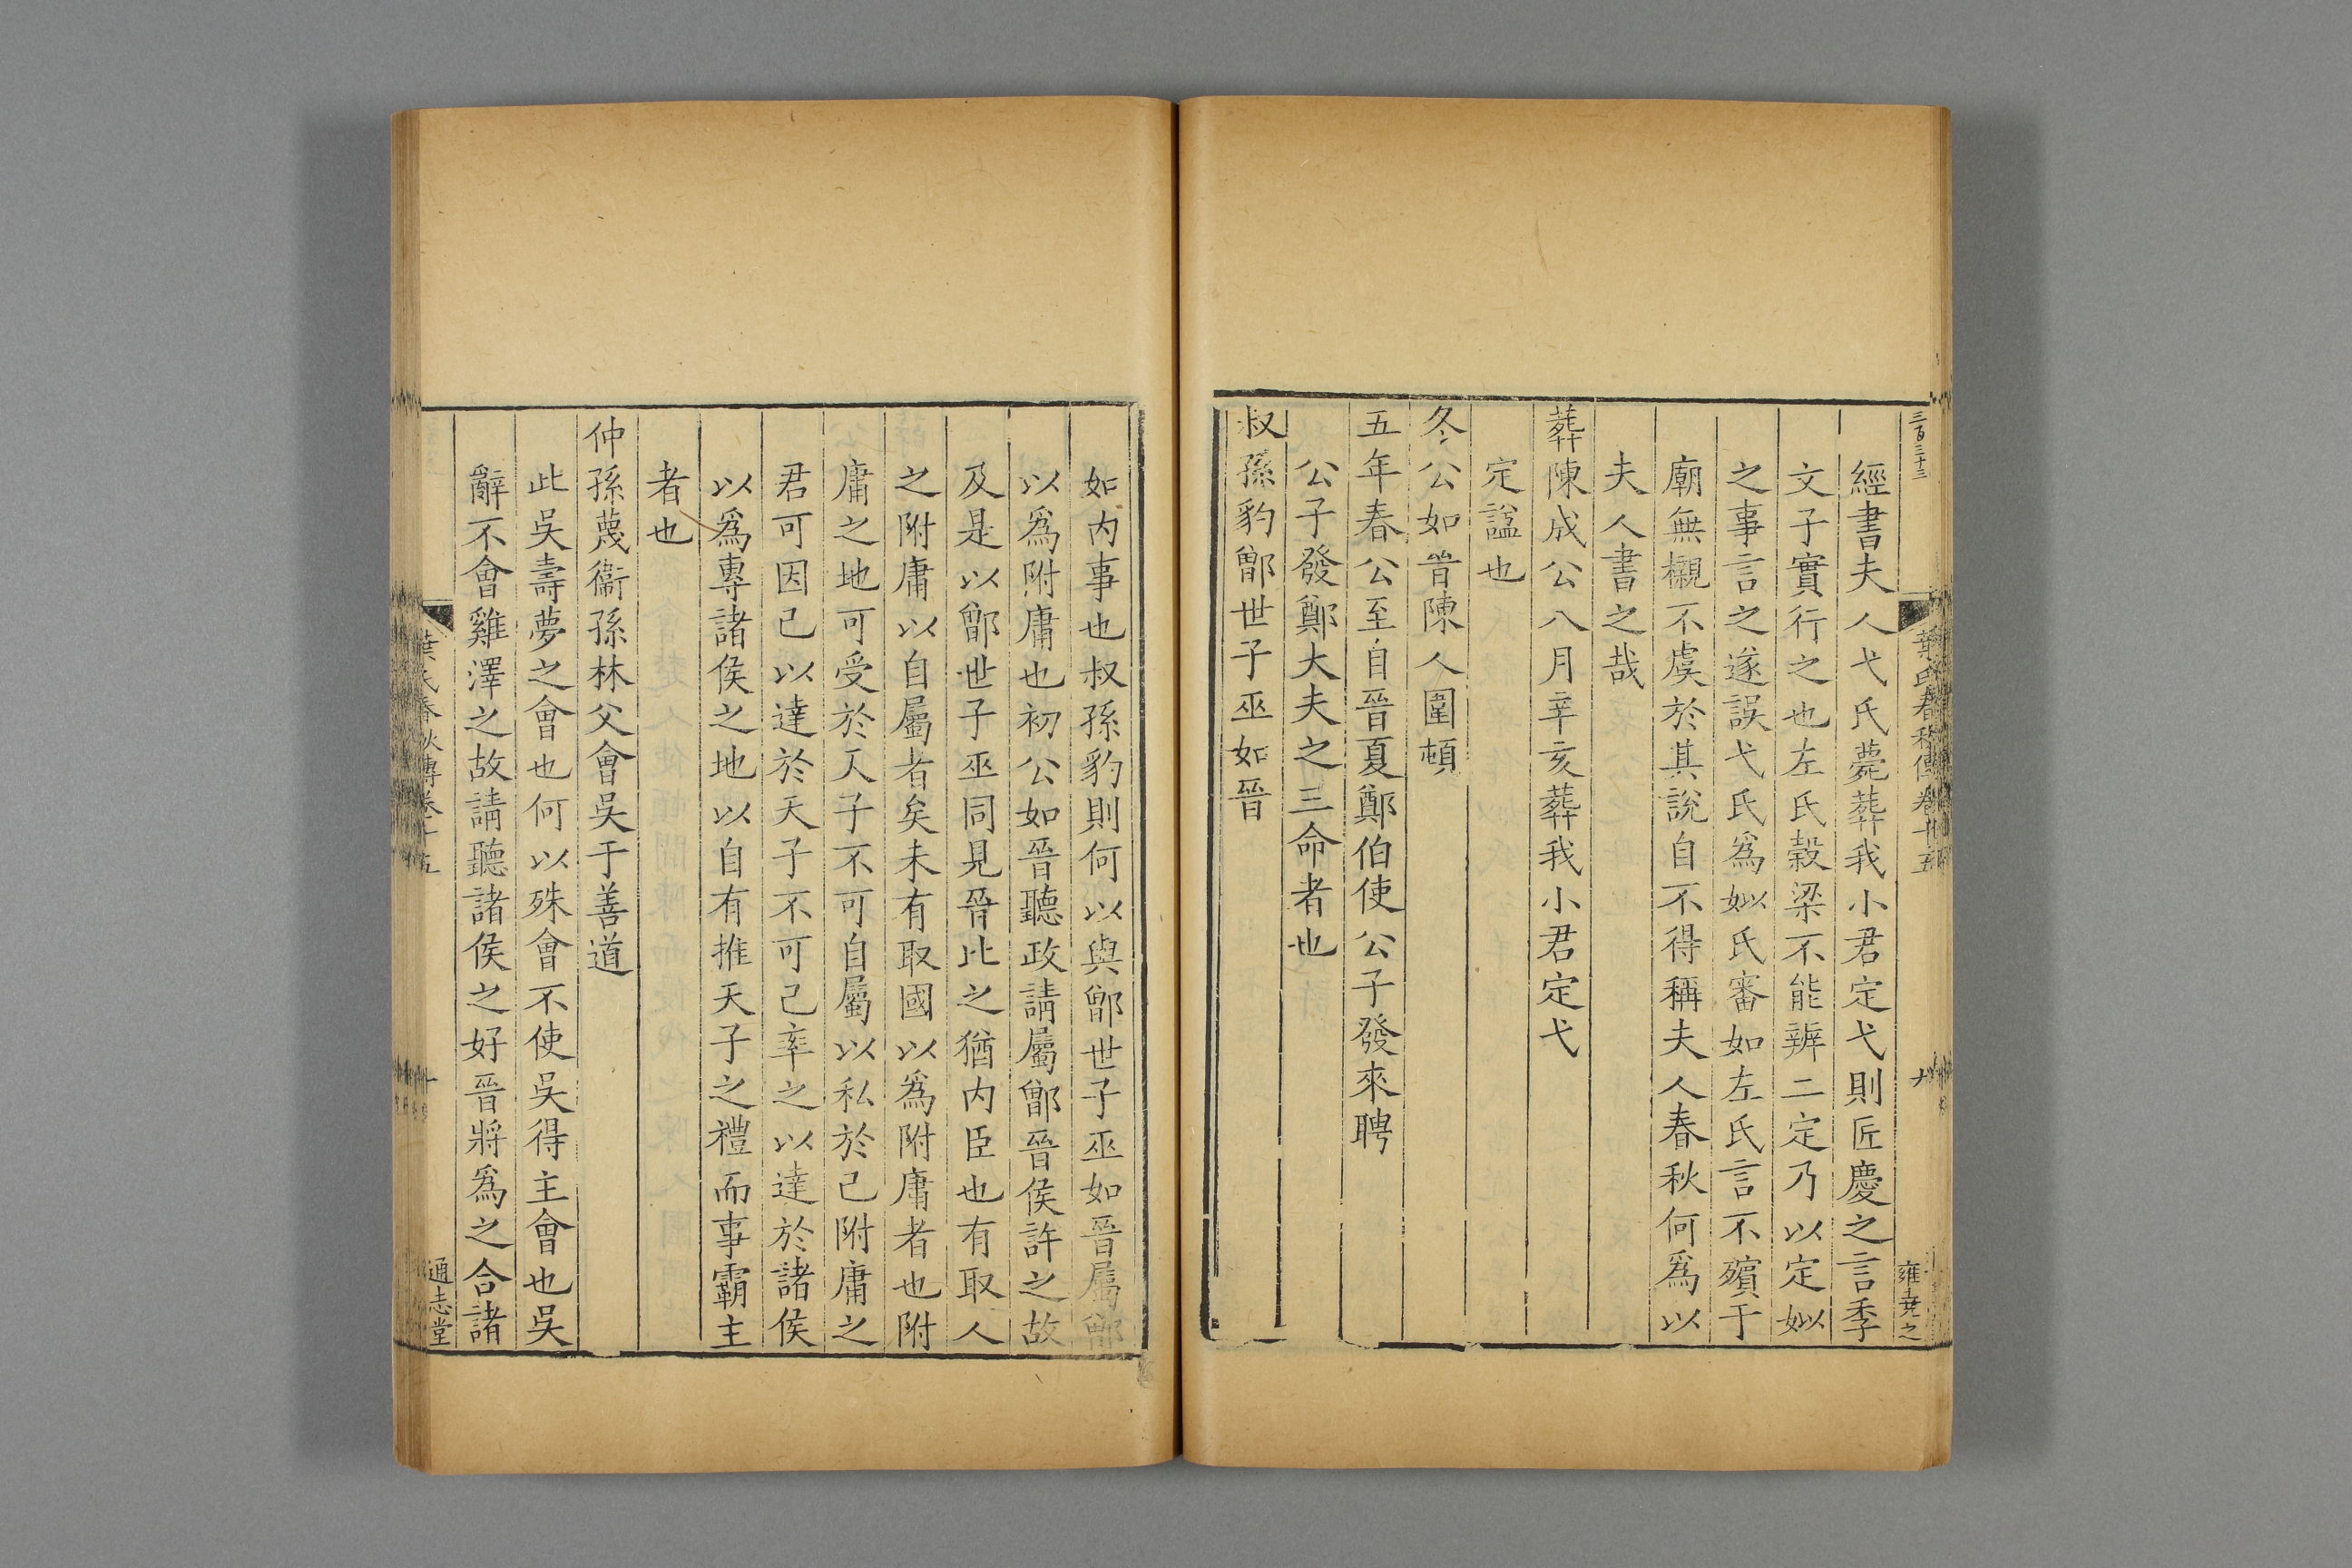 三百三十三
葉氏春秋傳卷十五
雍堯之
經書夫人弋氏薨葬我小君定弋則匠慶之言季
文子實行之也左氏穀梁不能辨二定乃以定姒
之事言之遂誤弋氏爲姒氏審如左氏言不殯于
廟無櫬不虞於其說自不得稱夫人春秋何爲以
夫人書之哉
葬陳成公八月辛亥葬我小君定弋
定諡也
冬公如晉陳人圍頓
五年春公至自晉夏鄭伯使公子發來聘
公子發鄭大夫之三命者也
叔孫豹鄫世子巫如晉
如内事也叔孫豹則何以與鄫世子巫如晉屬鄫
以爲附庸也初公如晉聽政請屬鄫晉侯許之故
及是以鄫世子巫同見晉此之猶内臣也有取人
之附庸以自屬者矣未有取國以爲附庸者也附
庸之地可受於天子不可自屬以私於己附庸之
君可因已以達於天子不可己率之以達於諸侯
以爲專諸侯之地以自有推天子之禮而事霸主
者也
仲孫蔑衞孫林父會吳于善道
此吳壽夢之會也何以殊會不使吳得主會也吳
辭不會雞澤之故請聽諸侯之好晉將爲之合諸
葉氏春秋傳卷十五
通志堂